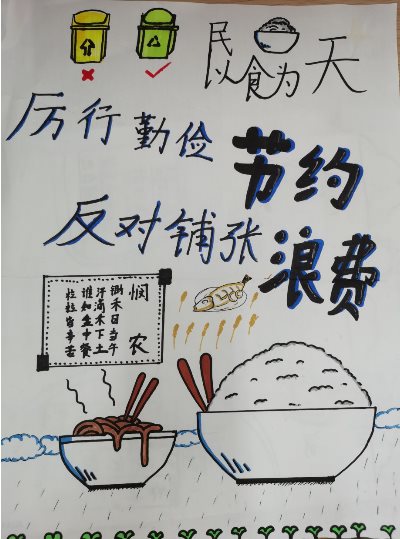 民以食为天
厉行 勤俭 节约
反对铺张 浪费
悯农
锄禾日当午
汗滴禾下土
谁知盘中餐
粒粒皆辛苦